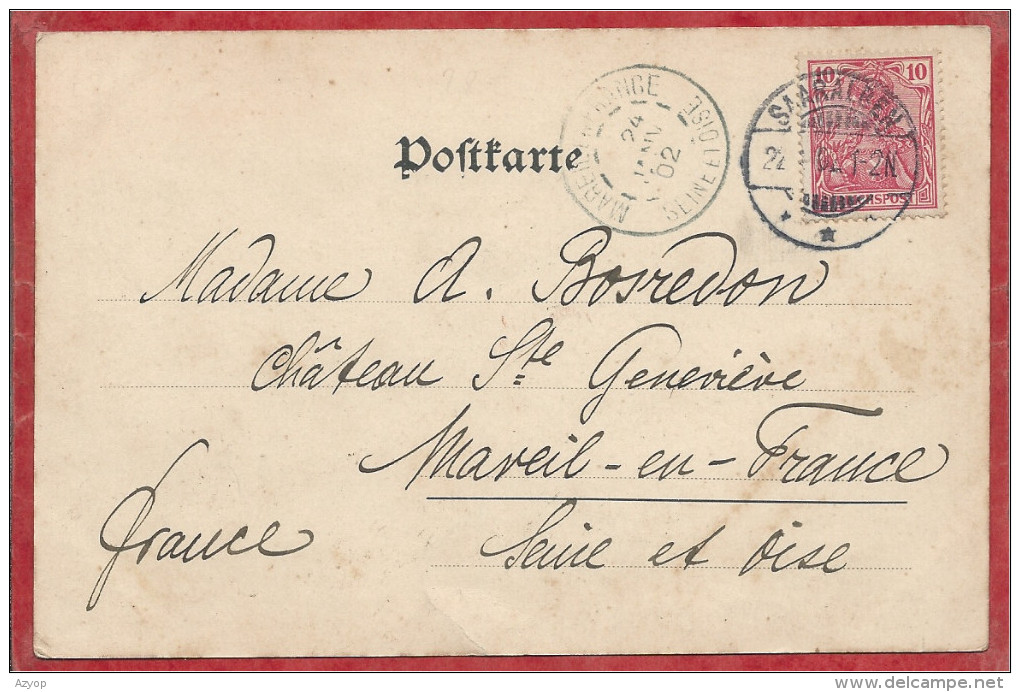 10 10
SAARALBEN
1-2N
REICHSPOST
24
JANV
02
SEINE ET OISE
Postkarte
Madame A. Bosredon
Château Ste Geneviève
Mareil-en-France
Seine et Oise
France
Azyop
delcampe.net